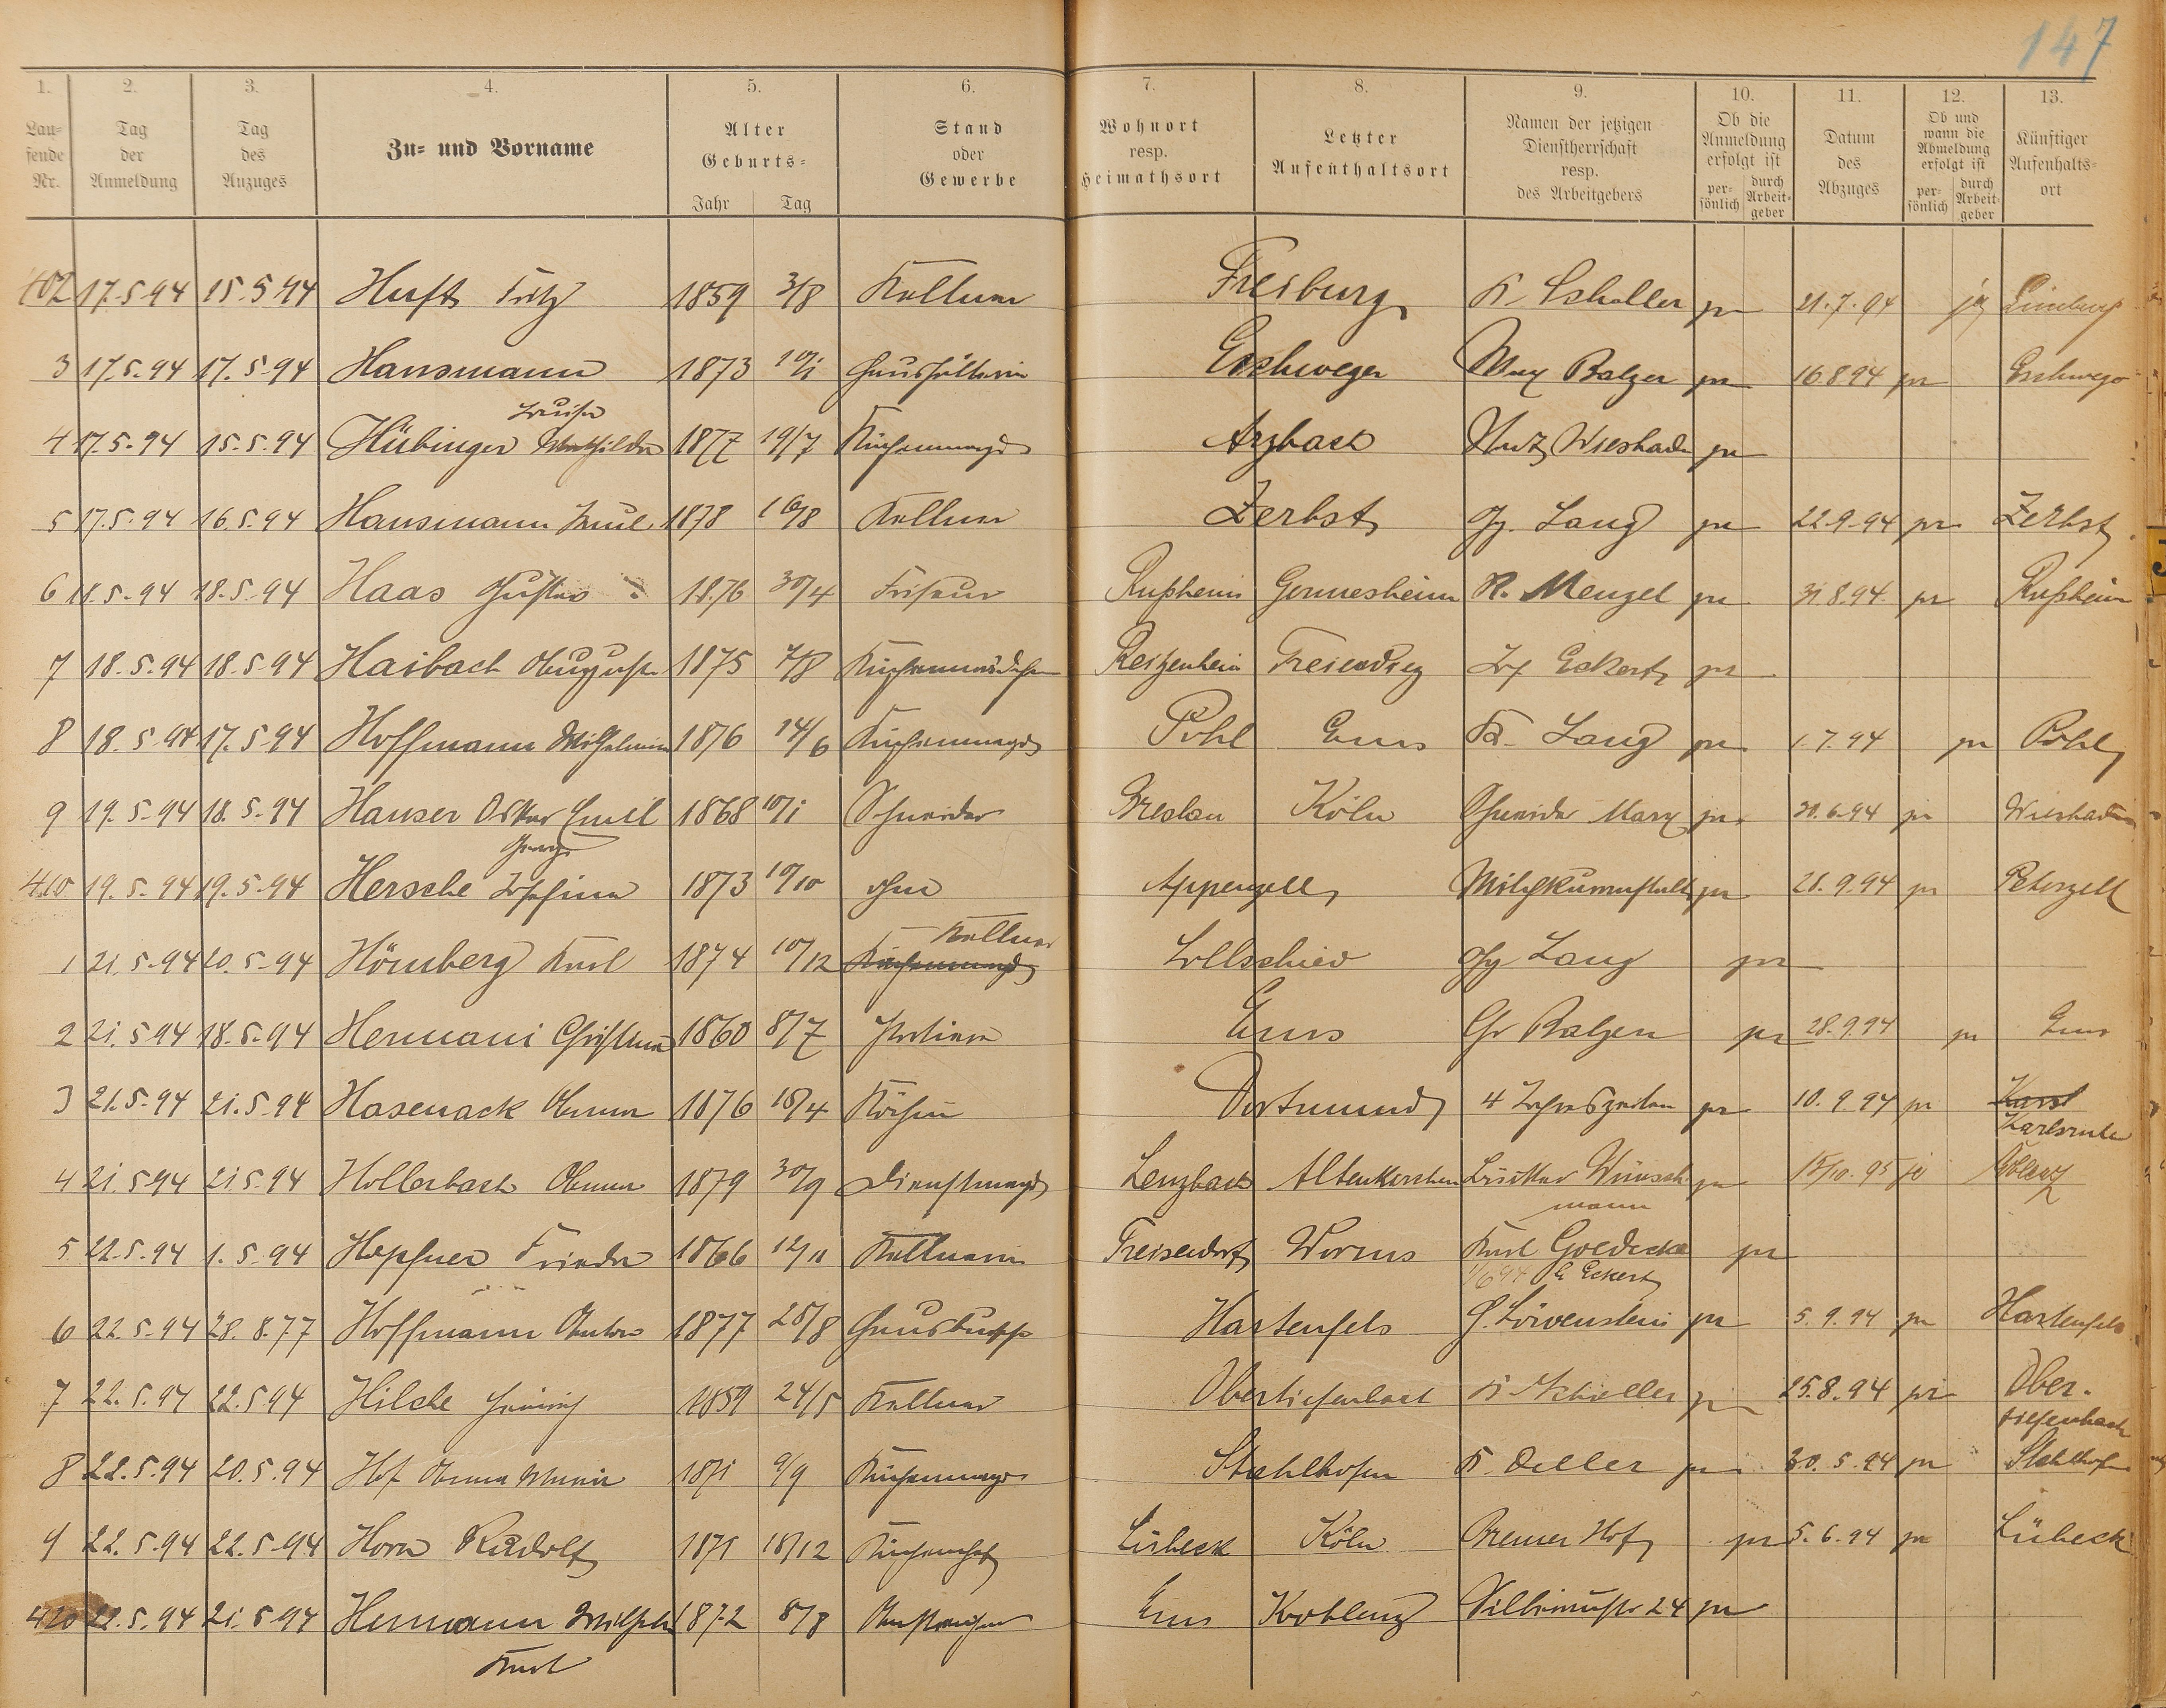 147
1. 2. 3. 4. 5. 6. 7. 8. 9. 10. 11. 12. 13.
Laufende Nr. Tag der Anmeldung Tag des Anzuges Zu- und Vorname Alter Geburts- Jahr Tag Stand oder Gewerbe Wohnort resp. Heimathsort Letzter Aufenthaltsort Namen der jetzigen Dienstherrschaft resp. des Arbeitgebers Ob die Anmeldung erfolgt ist persönlich durch Arbeitgeber Datum des Abzuges Ob und wann die Abmeldung erfolgt ist persönlich durch Arbeitgeber Künftiger Aufenhaltsort
402 17.5.94 15.5.94 Huft Fritz 1859 3/8 Kellner Freiburg K. Scheller pr 21.7.94 ja Limburg
3 17.5.94 17.5.94 Hansmann 1873 10/1 Haushälterin Eschweger Max Balzer pr 16.8.94 pr Eschwege
Louise
4 17.5.94 15.5.94 Hübinger Mathilde 1877 19/7 Küchenmagd Arzbach Wiesbaden pr
5 17.5.94 16.5.94 Hansmann Paul 1878 16/8 Kellner Zerbst Gg. Lang pr 22.9.94 pr Zerbst
6 18.5.94 18.5.94 Haas Gustav 1876 30/4 Friseur Rußheim Germesheim R. Menzel pr 31.8.94 pr Rußheim
7 18.5.94 18.5.94 Haibach Auguste 1875 7/8 Küchenmädchen Reitzenhein Freiendiez Eckert pr
8 18.5.94 17.5.94 Hoffmann Wilhelmine 1876 14/6 Küchenmagd Pohl Ems Fr. Lang pr 1.7.94 pr Pohl
9 19.5.94 18.5.94 Hanser Oskar Emil 1868 10/1 Schneider Breslau Köln Schneider Marx pr 20.6.94 pr Wiesbaden
Georg
410 19.5.94 19.5.94 Hersche Josefina 1873 10/10 ohne Appenzell Milchkuranstalt pr 21.9.94 pr Peterzell
Kellner
1 21.5.94 20.5.94 Hömberg Karl 1874 10/12 Küchenmagd Lollschied Gg Lang pr
2 21.5.94 18.5.94 Hermani Christian 1860 8/7 Portier Ems Gr Balzer pr 28.9.94 pr Ems
3 21.5.94 21.5.94 Hasenack Anna 1876 18/4 Köchin Dortmund 4 Jahreszeiten pr 10.9.94 pr Karsl
Karlsruhe
4 21.5.94 21.5.94 Hollerbach Anna 1879 30/9 Dienstmagd Lenzbach Altenkirchen Wünsch pr 15/10.95 ja Koblenz
mann
5 22.5.94 1.5.94 Hepfner Frieda 1866 12/11 Kellnerin Freisendorf Worms Karl Goedecke pr
1/6 94 E Eckert
6 22.5.94 28.8.77 Hoffmann Anton 1877 28/8 Hausbursche Hartenfels G. Löwenstein pr 5.9.94 pr Hartenfels
7 22.5.94 22.5.94 Hilche Heinrich 1859 24/5 Kellner Obertiefenbach K Scheller pr 25.8.94 pr Ober-
tiefenbach
8 22.5.94 20.5.94 Hof Anna Maria 1871 9/9 Küchenmagd Stahlhofen K. Deller pr 30.5.94 pr Stahlhofen
9 22.5.94 22.5.94 Horn Rudolf 1871 18/12 Küchenchef Lübeck Köln Bremer Hof pr 5.6.94 pr Lübeck
420 22.5.94 21.5.94 Hermann Wilhelm 1872 8/8 Anstreicher Ems Koblenz 24 pr
Karl